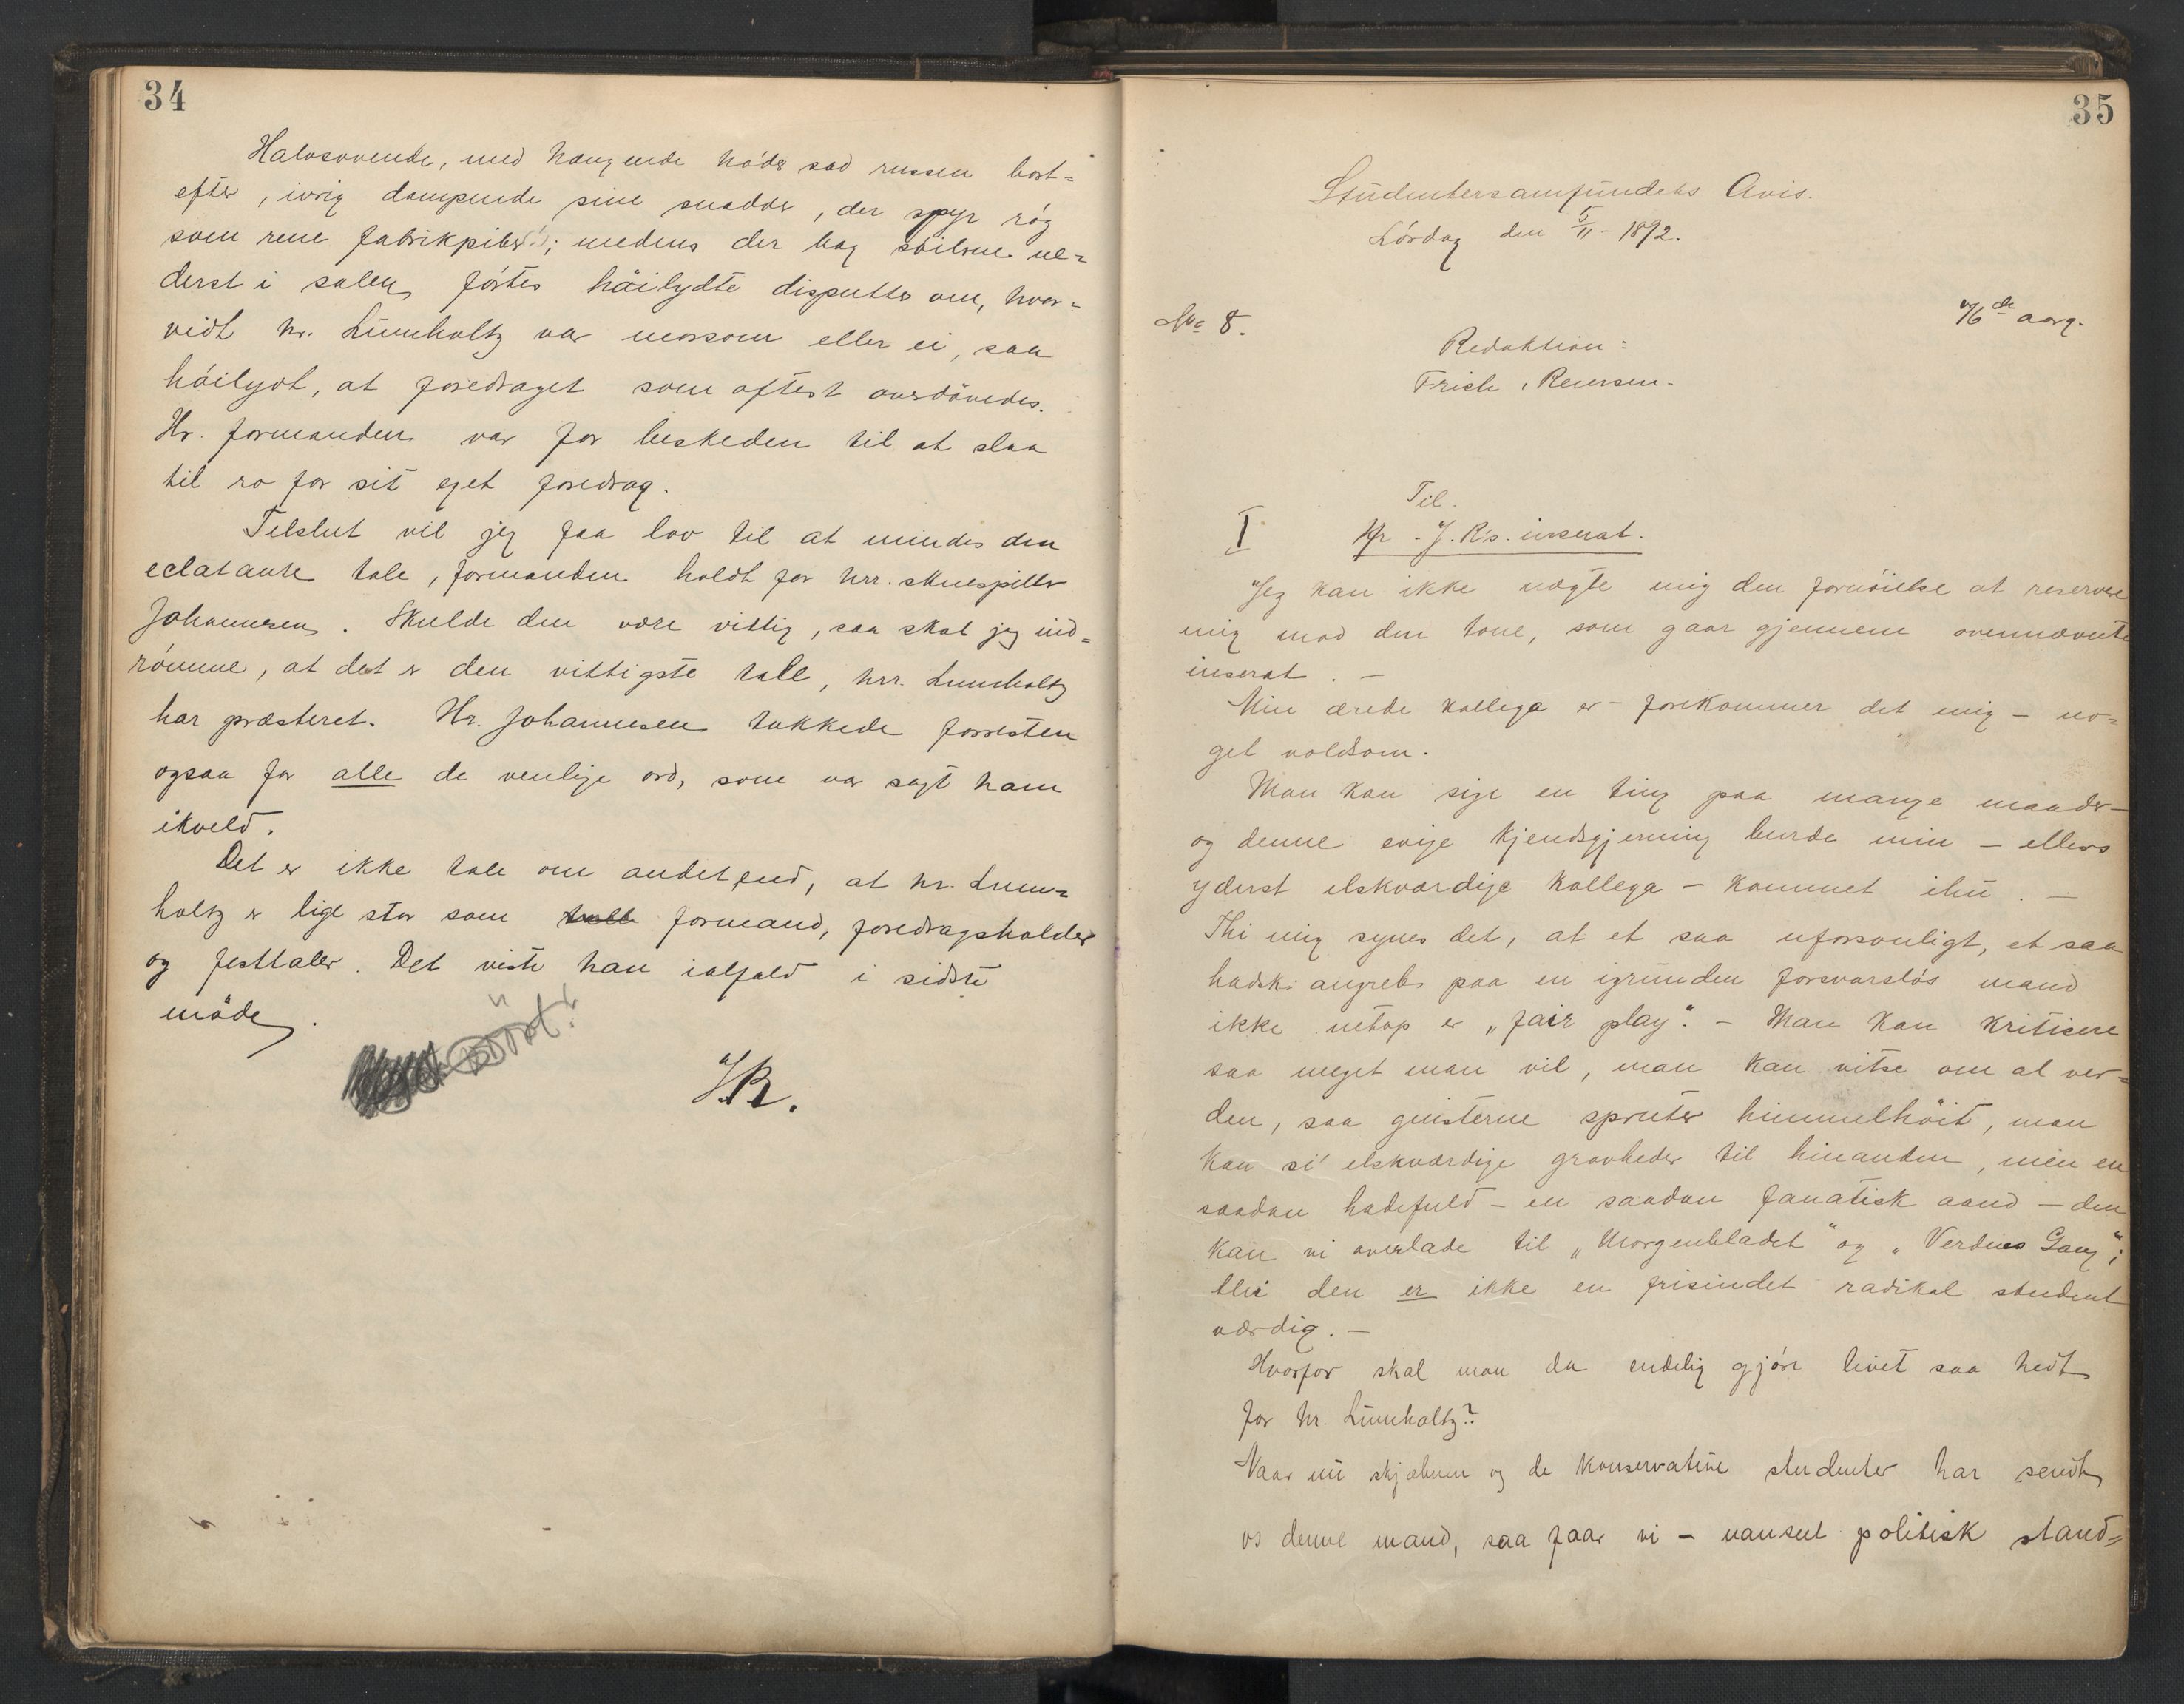 34
Halvsovende, med hængende hóder sad russen bort=
efter, ivrig dampende sine snadder, der spyr róg
som rene fabrikpiber; medens der bag sóilerne ne=
derst i salen fórtes hóilydte disputter om, hvor=
vidt hr. Lumholtz var morsom eller ei, saa
hóilydt, at foredraget som oftest overdóvedes.
Hr. formanden var for beskeden til at slaa
til ro for sit eget foredrag.
Tilslut vil jeg faa lov til at mindes den
eclatante tale, formanden holdt for hrr. skuespiller
Johannesen. Skulde den være vittig, saa skal jeg ind=
rómme, at det er den vittigste tale, hrr. Lumholtz
har præsteret. Hr. Johannesen takkede forresten
ogsaa for alle de venlige ord, som var sagt ham
ikveld.
Det er ikke tale om andet end, at hr. Lum=
holtz er lige stor som formand, foredragsholder
og festtaler. Det viste han ialfald i sidste
móde.
J.R.
35
Studentersamfundets Avis.
Lórdag den 5/11 - 1892.
No 8.
16de aarg.
Redaktion:
Frich, Reursen.
Til
I Hr. J. R's. inserat.
Jeg kan ikke nægte mig den fornóielse at reservere
mig mod den tone, som gaar gjennem ovennævnte
inserat. —
Min ærede kollega er – forekommer det mig – no=
get voldsom.
Man kan sige en ting paa mange maader —
og denne evige kjendsgjerning burde min – ellers
yderst elskværdige kollega – kommet ihu. —
Thi mig synes det, at et saa uforsonligt, et saa
hadsk angreb paa en igrunden forsvarslós mand
ikke netop er „fair play". – Man kan kritisere
saa meget man vil, man kan vitse om al ver=
den, saa gnisterne spruter himmelhóit, man
kan si' elskværdige grovheder til hinanden, men en
saadan hadefuld – en saadan fanatisk aand – den
kan vi overlade til „Morgenbladet" og „Verdens Gang";
thi den er ikke en frisindet radikal student
værdig. —
Hvorfor skal man da endelig gjóre livet saa hedt
for hr. Lumholtz?
Naar nu skjæbnen og de konservative studenter har sendt
os denne mand, saa faar vi – uanseet politisk stand=